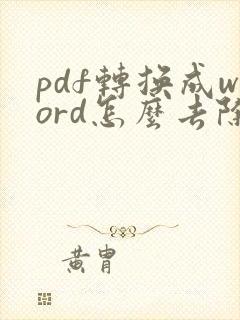 pdf轉換成w
ord怎麼去除
黃胄